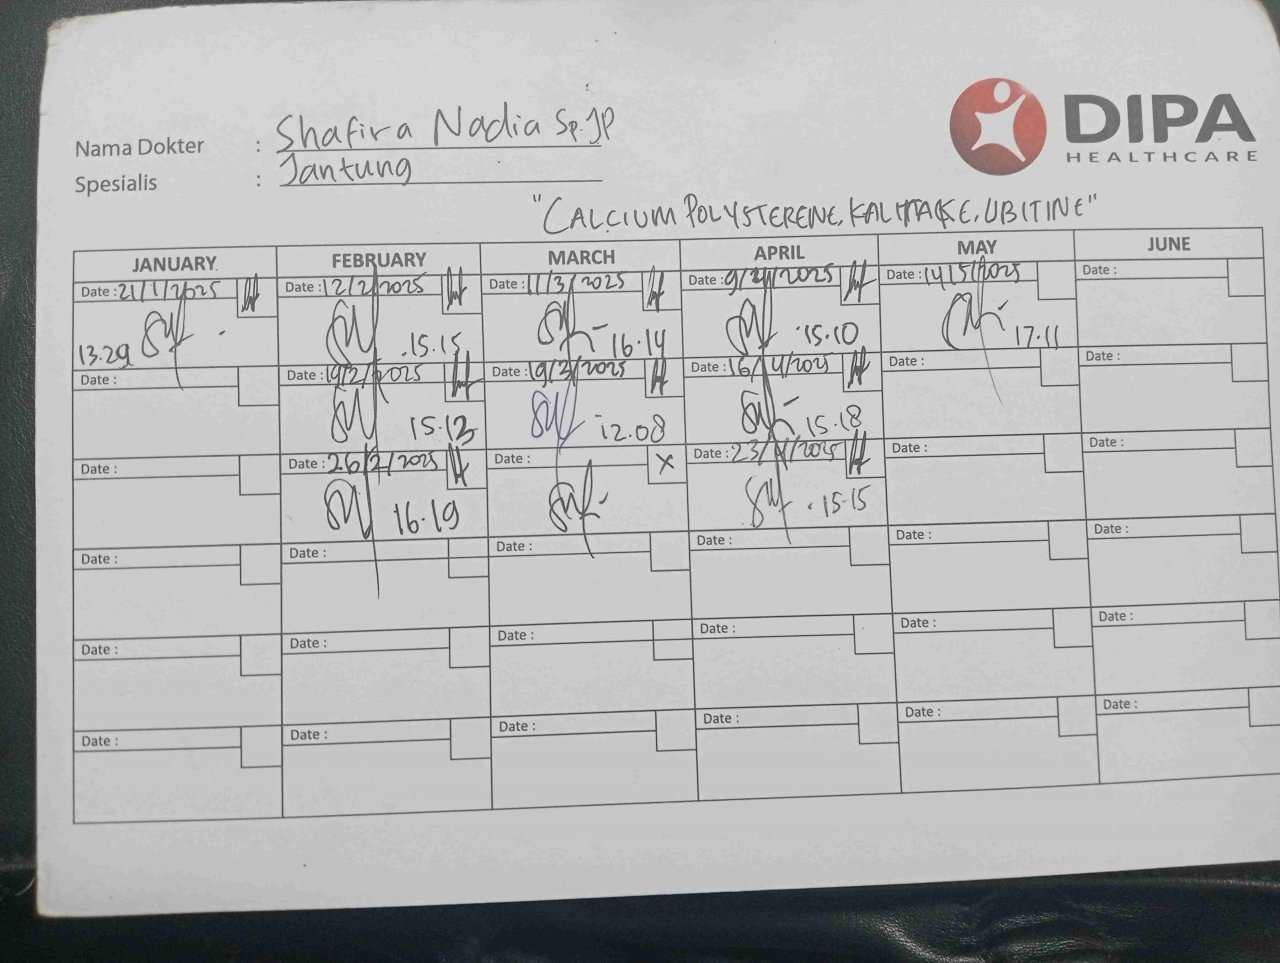 DIPA
HEALTHCARE
Nama Dokter : Shafira Nadia Sp.JP
Spesialis : Jantung
"CALCIUM POLYSTERENE, KALITAKE, UBITINE"
JANUARY FEBRUARY MARCH APRIL MAY JUNE
Date : 21/1/2025 Date : 12/2/2025 Date : 11/3/2025 Date : 9/4/2025 Date : 14/5/2025 Date :
13.29 15.15 16.14 15.10 17.11
Date : Date : 19/2/2025 Date : 19/3/2025 Date : 16/4/2025 Date : Date :
15.13 12.08 15.18
Date : Date : 26/2/2025 Date : X Date : 23/4/2025 Date : Date :
16.19 15.15
Date : Date : Date : Date : Date : Date :
Date : Date : Date : Date : Date : Date :
Date : Date : Date : Date : Date : Date :